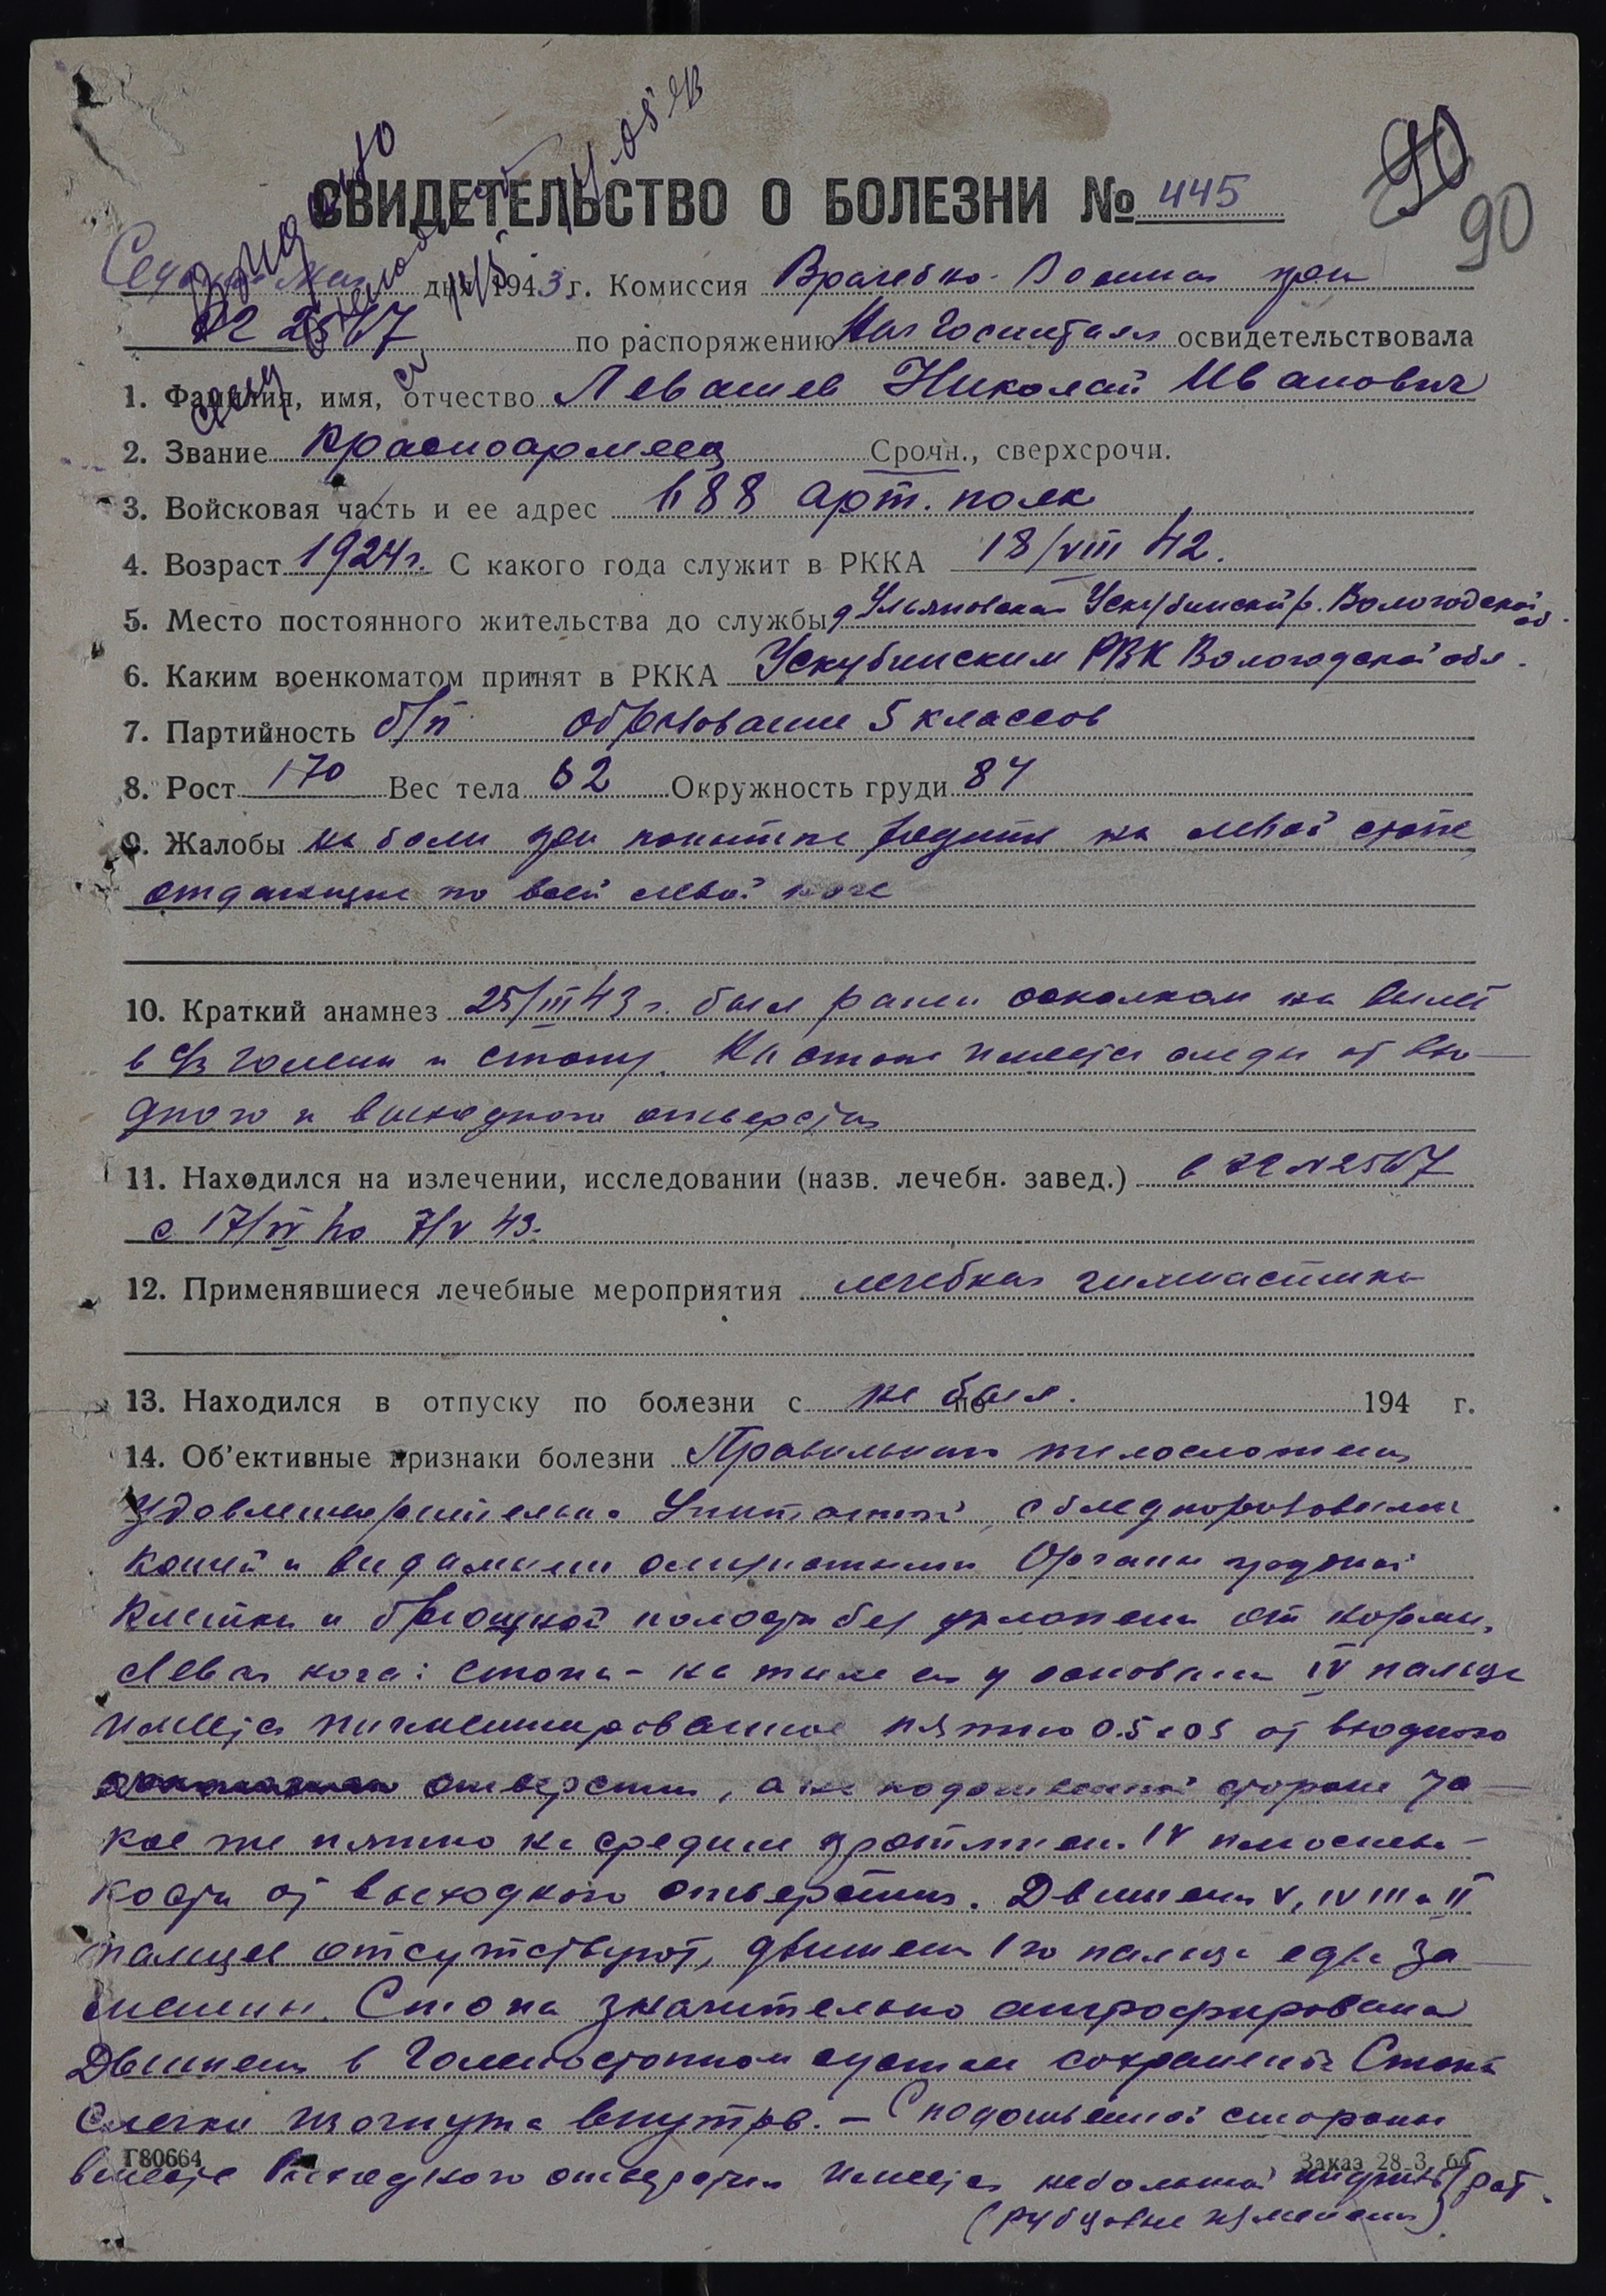 90
90
СВИДЕТЕЛЬСТВО О БОЛЕЗНИ № 445
Седьмого Мая дня 1943 г. Комиссия Врачебно-Военная при
по распоряжению Нач Госпиталя освидетельствовала
1. Фамилия, имя, отчество Левашев Николай Иванович
2. Звание Красноармеец Срочн., сверхсрочн.
3. Войсковая часть и ее адрес арт. полк
4. Возраст 1924 г. С какого года служит в РККА 18/VIII 42.
5. Место постоянного жительства до службы д Ульяновская Ускубинский р. Вологодской об.
6. Каким военкоматом принят в РККА Ускубинским РВК Вологодской обл.
7. Партийность б/п образование 5 классов
8. Рост 170 Вес тела 62 Окружность груди 84
9. Жалобы на боли при попытке ходить на левой стопе
отдающие по всей левой ноге
10. Краткий анамнез 25/III 43 г. был ранен осколком на вылет
в голени и стопу. На стопе имеется следы от вхо-
дного и выходного отверстия
11. Находился на излечении, исследовании (назв. лечебн. завед.) в ЭГ N 2567
с 17/IV по 7/V 43.
12. Применявшиеся лечебные мероприятия лечебная гимнастика
13. Находился в отпуску по болезни с не был. по 194 г.
14. Об'ективные признаки болезни Правильного телосложения
удовлетворительно упитанный, с бледнорозовыми
кожей и видимыми слизистыми Органы грудной
клетки и брюшной полости без уклонения от нормы.
Левая нога: стопа - на тыле ея у основания IV пальца
имеется пигментированное пятно 0.5x0.5 от входного
отверстия, а на подошвенной стороне та-
кое же пятно на средине протяжен. IV плюсневой
кости от выходного отверстия. Движения V, IV III и II
пальцев отсутствуют, движения I го пальца едва за
метны. Стопа значительно атрофирована
Движения в голеностопном суставе сохранены Стопа
слегка изогнута внутрь. - С подошвенной стороны
вместе выходного отверстия имеется небольшой инфильтрат
(рубцовые изменения)
Г80664
Заказ 28-3